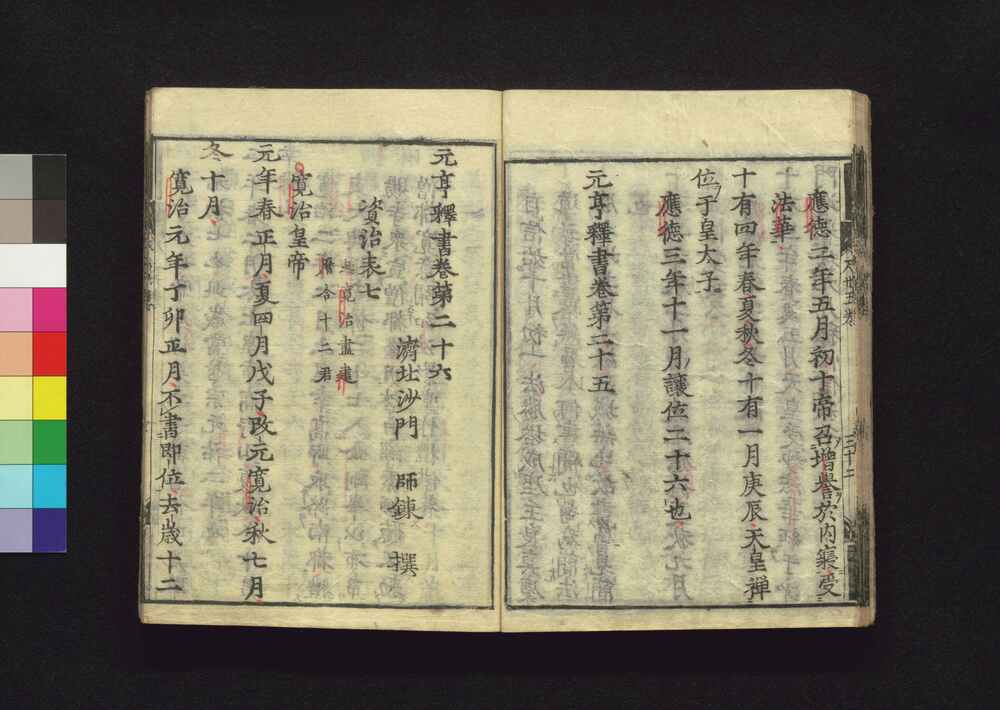 應德二年五月初十帝召增譽於內寢受
法華
十有四年春夏秋冬十有一月庚辰天皇禪
位于皇太子
應德三年十一月讓位二十六也
元亨釋書卷第二十五
元亨釋書卷第二十六
濟北沙門 師鍊 撰
資治表七
起寬治盡建
曆合十二君
寬治皇帝
元年春正月夏四月戊子改元寬治秋七月
冬十月
寬治元年丁卯正月不書即位去歲十二